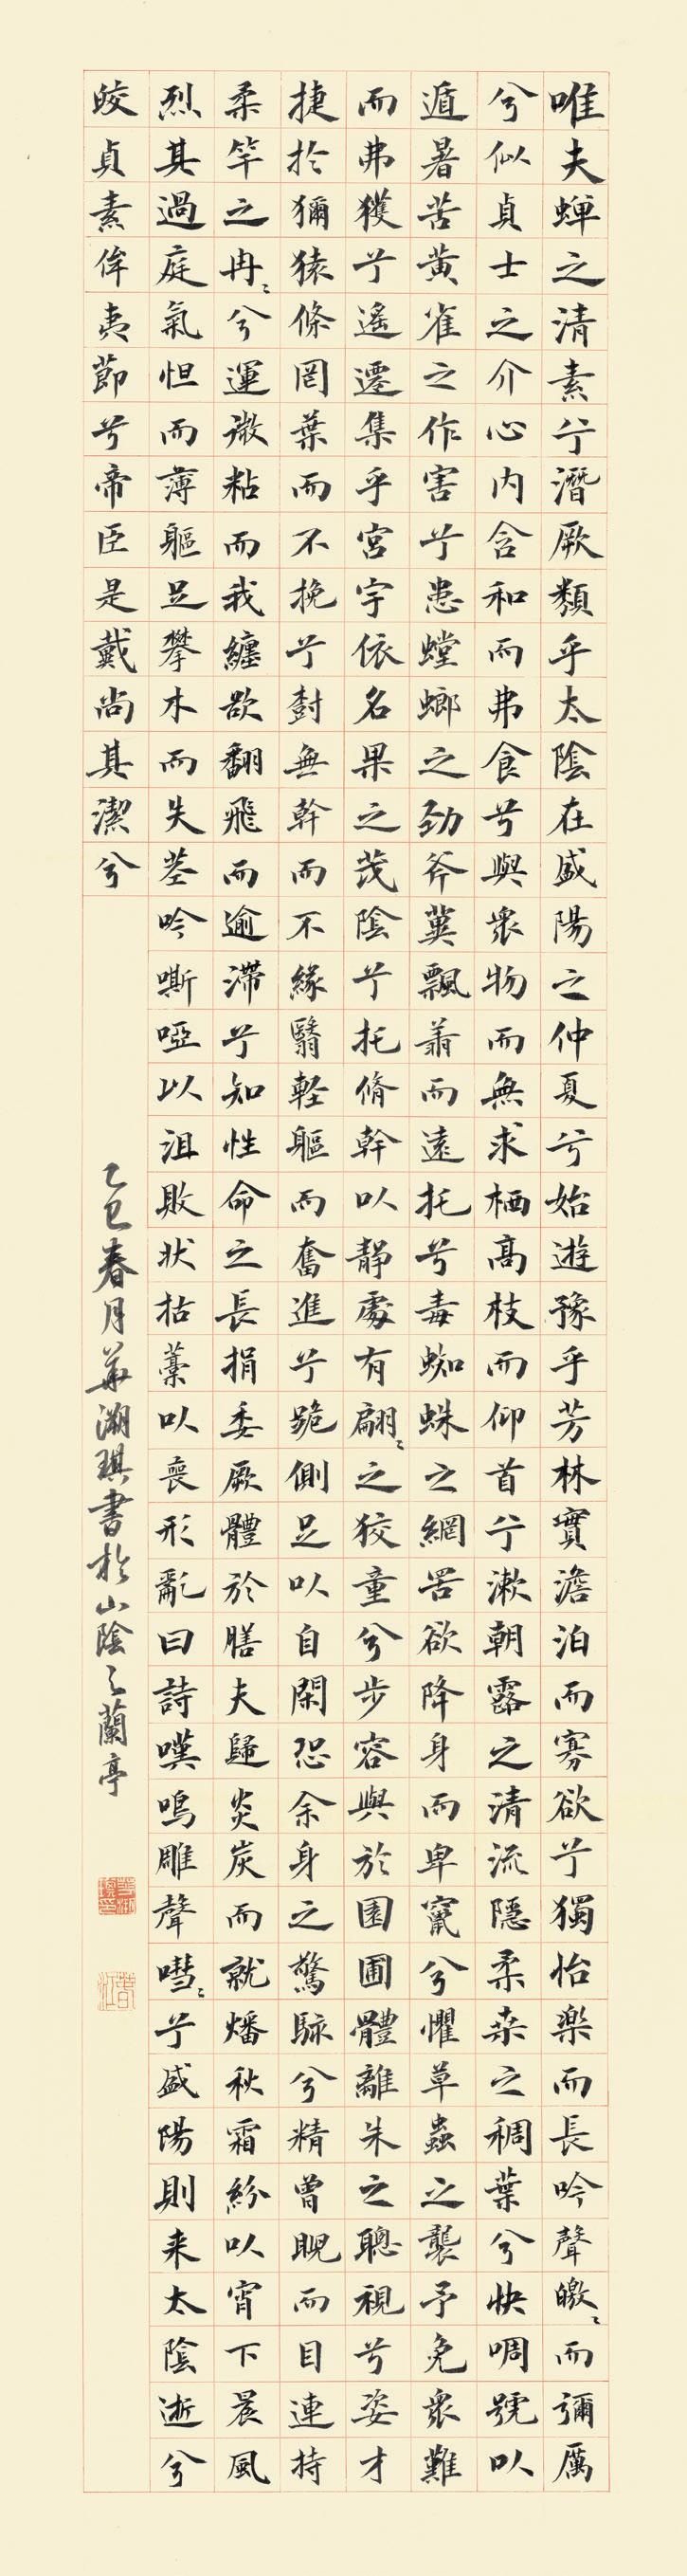 唯夫蟬之清素兮潛厥類乎太陰在盛陽之仲夏兮始遊豫乎芳林實澹泊而寡欲兮獨怡樂而長吟聲皦〻而彌厲
兮似貞士之介心内含和而弗食兮與衆物而無求栖高枝而仰首兮漱朝露之清流隱柔桑之稠葉兮快啁號以
遁暑苦黃雀之作害兮患螳螂之勁斧冀飄翥而遠托兮毒蜘蛛之網罟欲降身而卑竄兮懼草蟲之襲予免衆難
而弗獲兮遙遷集乎宮宇依名果之茂陰兮托脩幹以靜處有翩〻之狡童兮步容與於園圃體離朱之聰視兮姿才
捷於獼猿條罔葉而不挽兮樹無幹而不緣翳輕軀而奮進兮跪側足以自閑恐余身之驚駭兮精曾睨而目連持
柔竿之冉〻兮運微粘而我纏欲翻飛而逾滯兮知性命之長捐委厥體於膳夫歸炎炭而就燔秋霜紛以宵下晨風
烈其過庭氣怛而薄軀足攀木而失莖吟嘶啞以沮敗狀枯藁以喪形亂曰詩嘆鳴雕聲嘒〻兮盛陽則来太陰逝兮
皎貞素侔夷節兮帝臣是戴尚其潔兮
乙巳春月華溯琪書於山陰之蘭亭